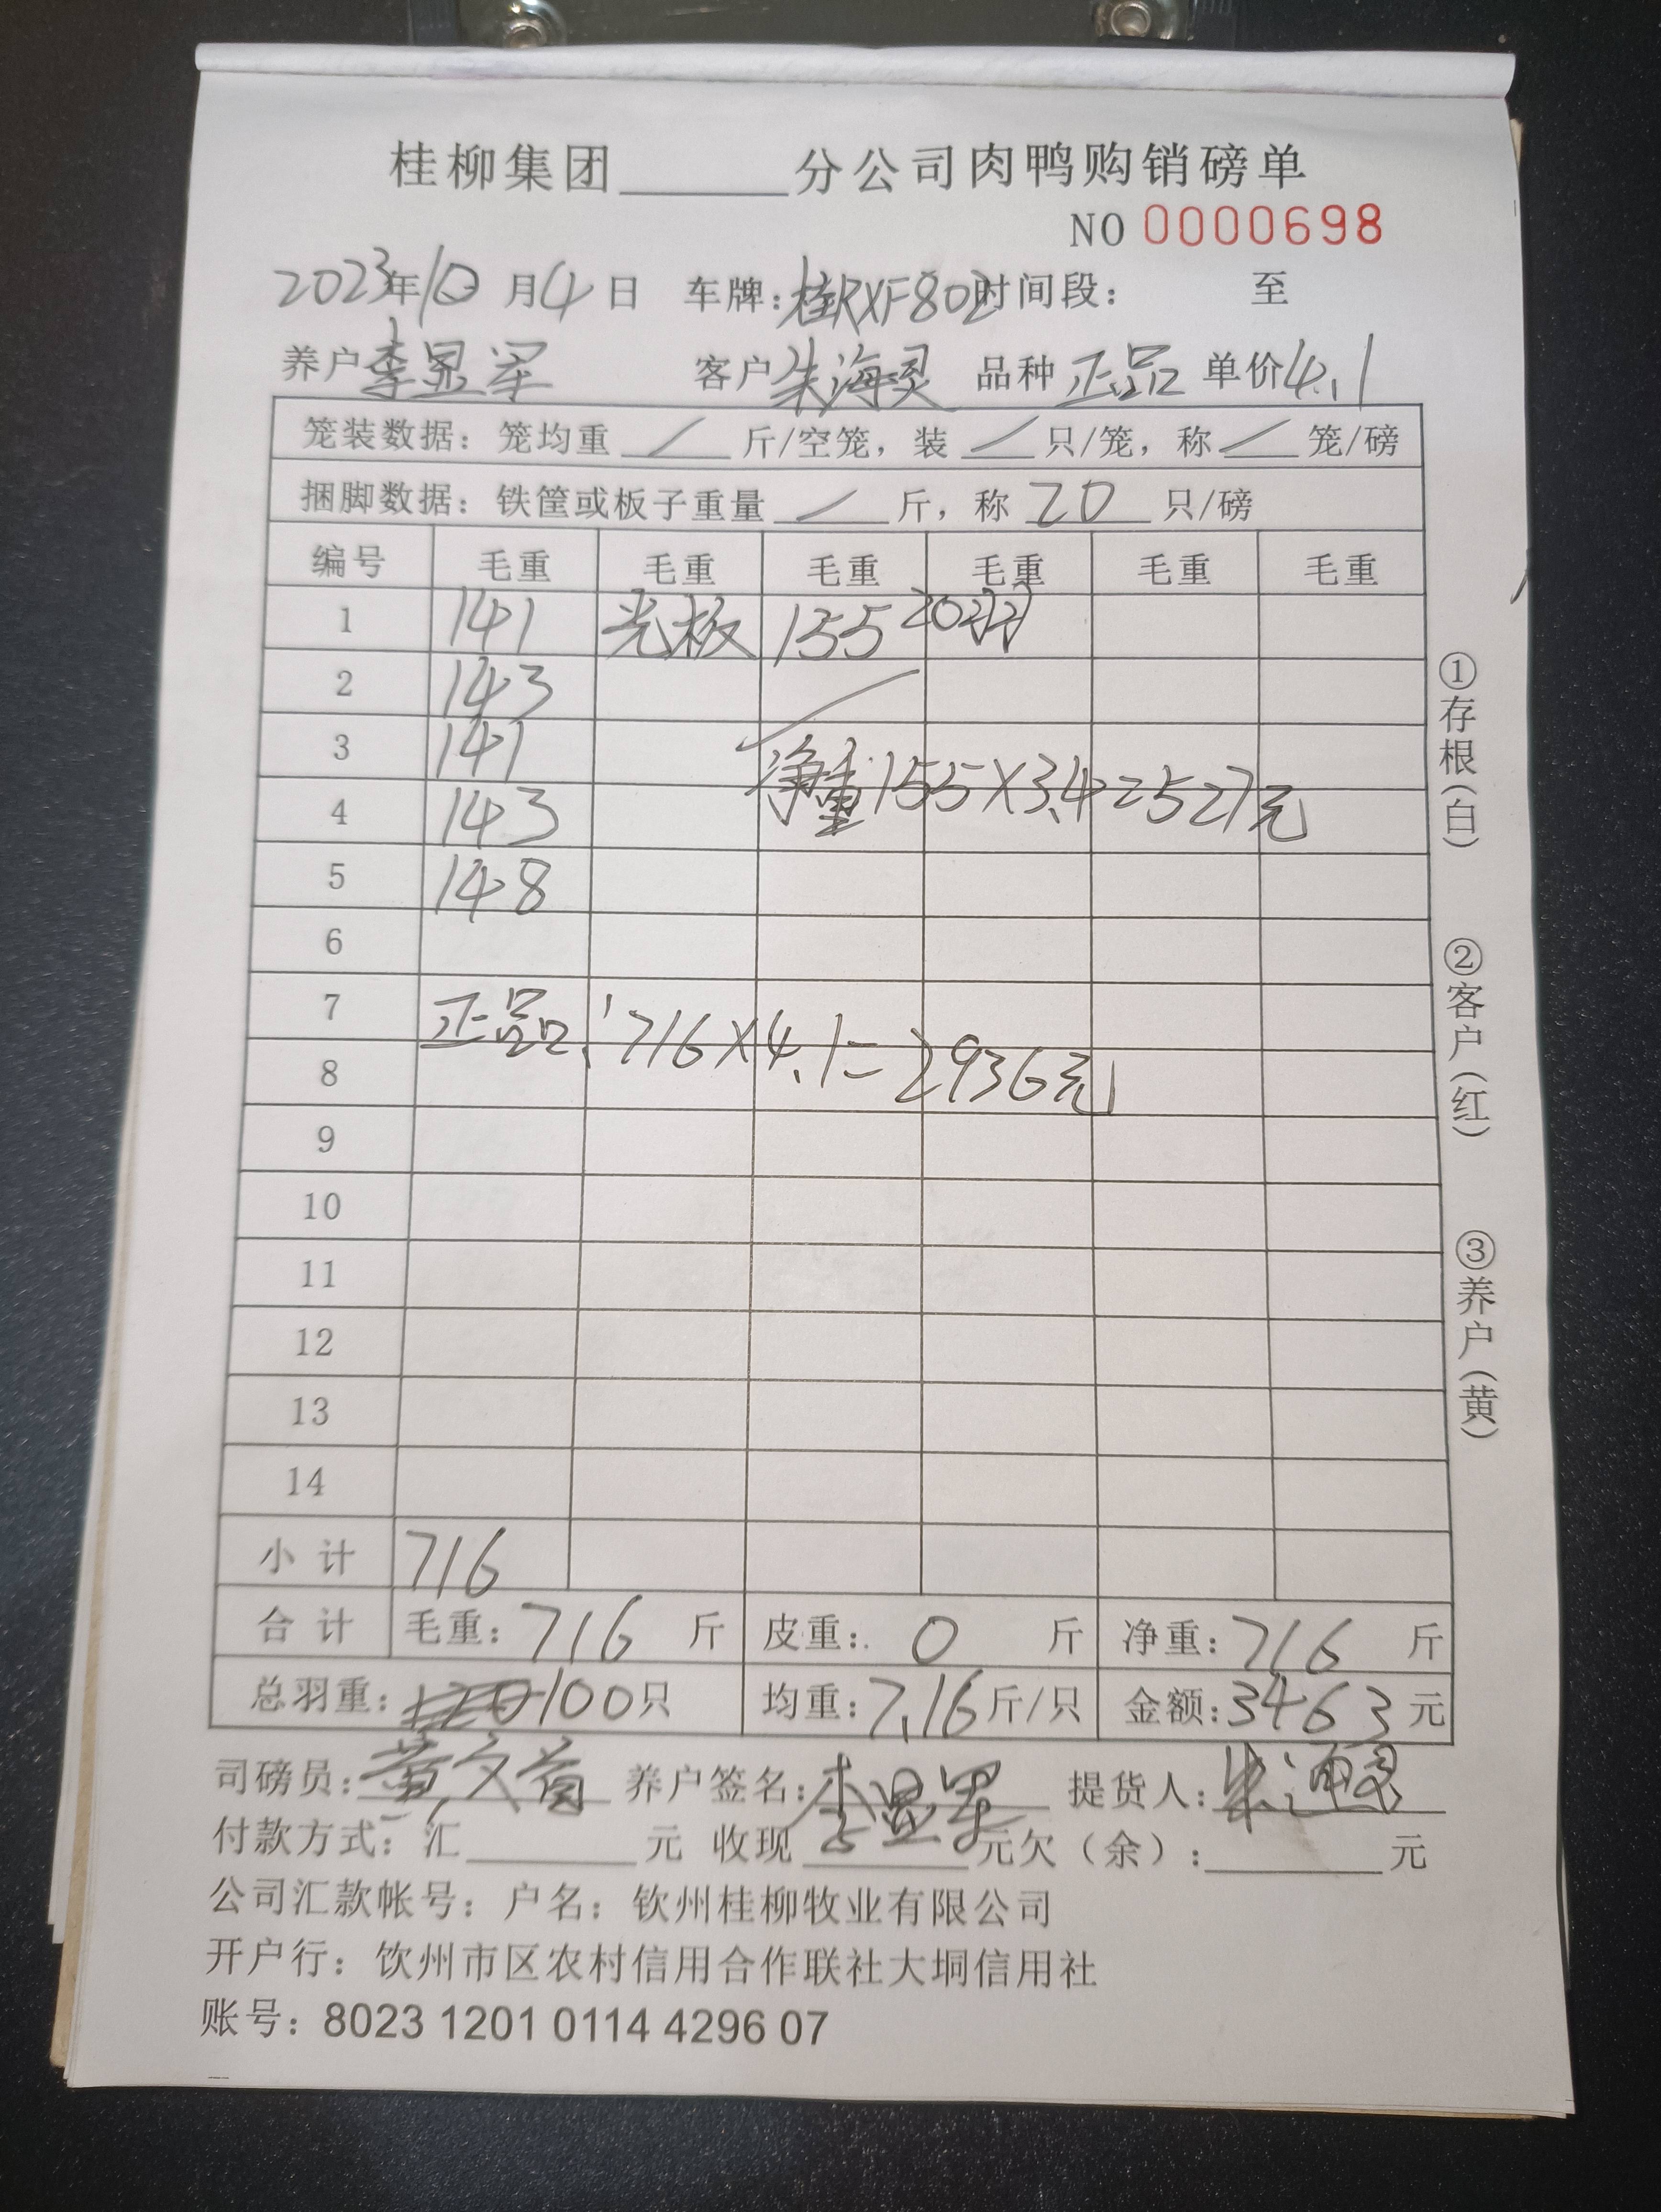 桂柳集团______分公司肉鸭购销磅单
NO 0000698
2023年10月4日 车牌:桂RXF802时间段: 至
养户李显军 客户朱海灵 品种正品 单价4.1
笼装数据: 笼均重 / 斤/空笼, 装 / 只/笼, 称 / 笼/磅
捆脚数据: 铁筐或板子重量 / 斤, 称 20 只/磅
编号 毛重 毛重 毛重 毛重 毛重 毛重
1 141 光板 155 20
2 143
3 141
净重155X3.4=527元
4 143
5 148
6
7
正品:716X4.1=2936元
8
9
10
11
12
13
14
小计 716
合计 毛重:716 斤 皮重:0 斤 净重:716 斤
总羽重:100只 均重:7.16斤/只 金额:3463元
司磅员:黄文首 养户签名:李显军 提货人:朱海灵
付款方式:汇______元 收现______元欠(余):______元
公司汇款帐号: 户名: 钦州桂柳牧业有限公司
开户行: 饮州市区农村信用合作联社大垌信用社
账号: 8023 1201 0114 4296 07
①存根(白)
②客户(红)
③养户(黄)